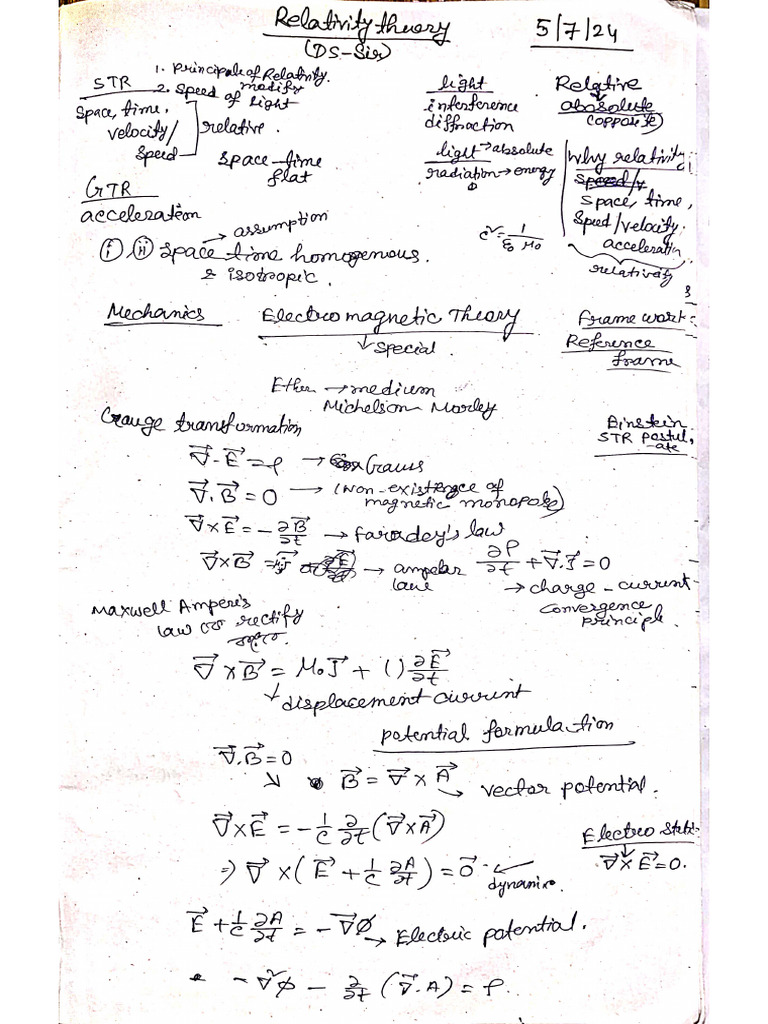 Relativity theory 5/7/24
(DS-Sir)
STR 1. Principale of Relativity.
2. Speed of light modify
Space, time,
velocity/
Speed
relative.
space-time
flat
light
interference
diffraction
light → absolute
radiation → energy
Relative
absolute
(opposite)
Why relativity;
Space, time,
Speed/velocity.
acceleration
relativity
GTR
acceleration
→ assumption
(i) (ii) space time homogenous.
& isotropic.
c² = 1/ε₀μ₀
Mechanics Electromagnetic Theory
↓ special.
Frame work:
Reference
frame
Ether → medium
Michelson Morley
Gauge transformation
Einstein
STR postul,
-ate
∇⃗.E⃗ = ρ → Gauss
∇⃗.B⃗ = 0 → (non-existence of
magnetic monopole)
∇⃗×E⃗ = -∂B⃗/∂t → faraday's law
∇⃗×B⃗ = μ₀J⃗ → amperes law
∂ρ/∂t + ∇⃗.J⃗ = 0
→ charge-current
convergence
principle.
Maxwell Ampere's
law কে rectify
∇⃗×B⃗ = μ₀J⃗ + ( ) ∂E⃗/∂t
↳ displacement current
potential formulation
∇⃗.B⃗ = 0
↘ B⃗ = ∇⃗×A⃗
↳ vector potential.
∇⃗×E⃗ = -1/c ∂/∂t (∇⃗×A⃗)
⇒ ∇⃗×(E⃗ + 1/c ∂A⃗/∂t) = 0⃗
dynamic.
Electro stati:
∇⃗×E⃗ = 0.
E⃗ + 1/c ∂A/∂t = -∇⃗φ
→ Electric potential.
-∇²φ - ∂/∂t (∇⃗.A) = ρ.